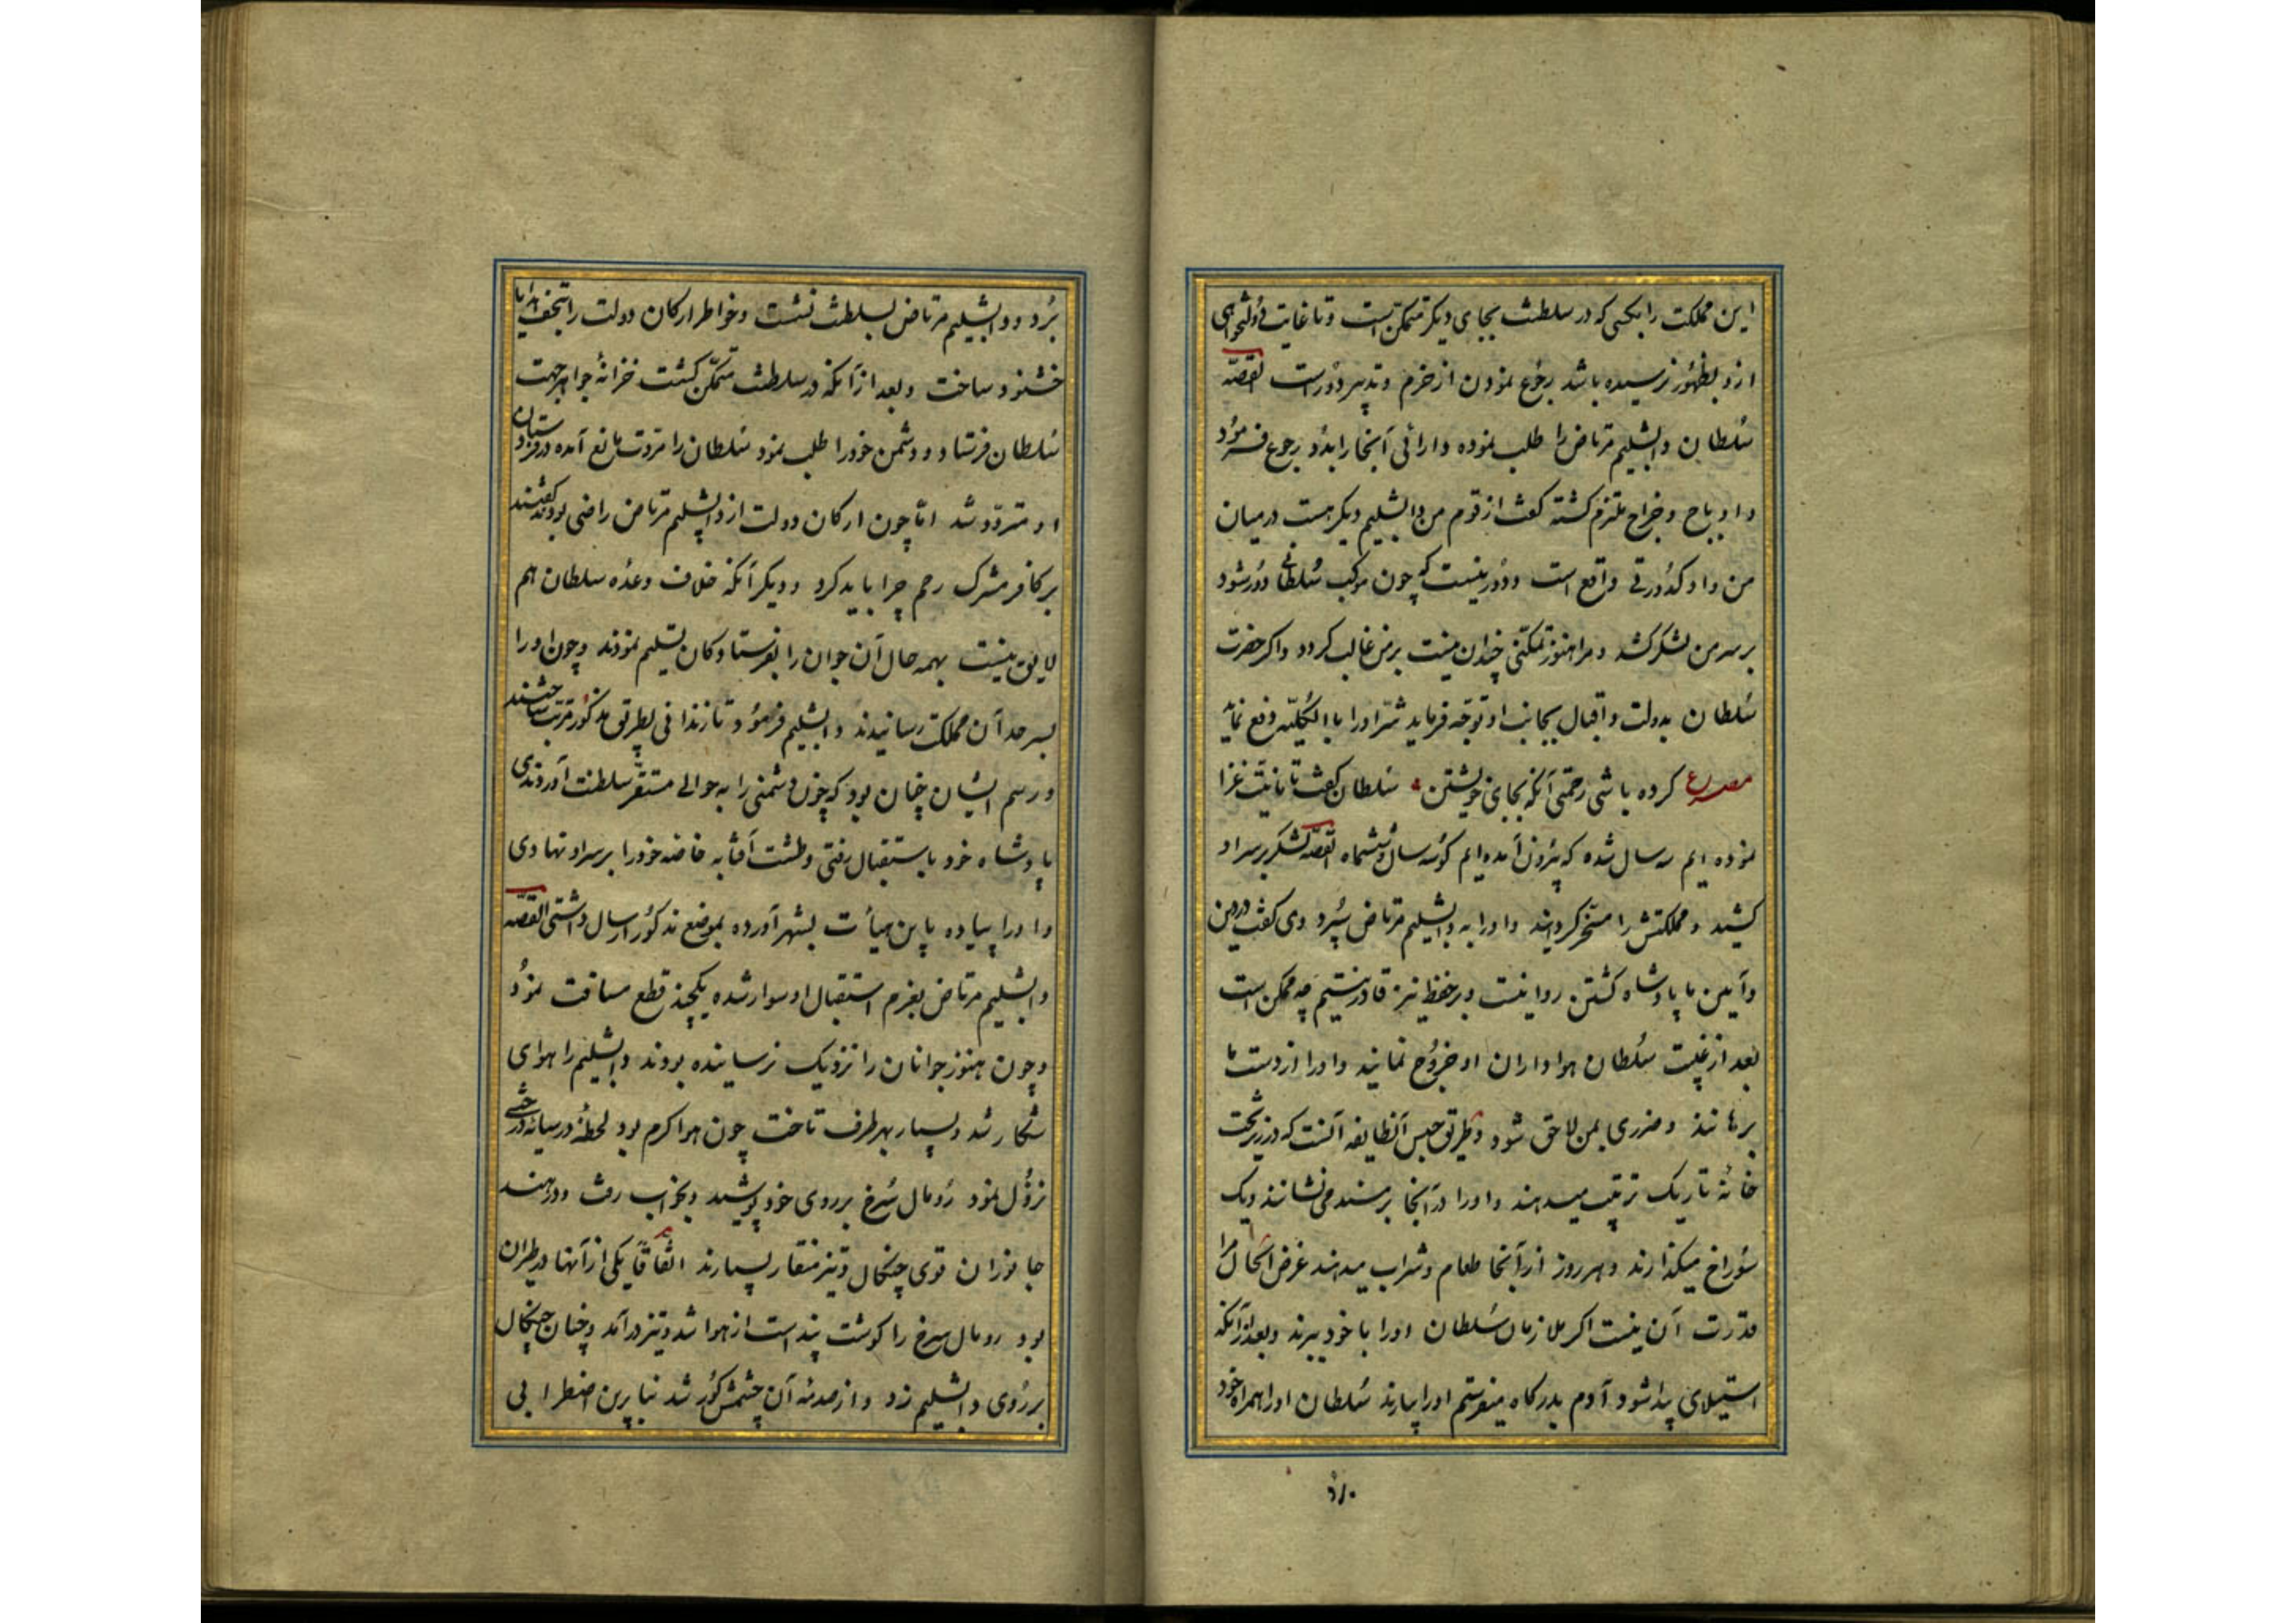 این مملکت را بکسی که در سلطنت بجای دیگر متمکن است و تا غایت دولتخواهی
ازو بظهور نرسیده باشد رجوع نمودن از حزم و تدبیر دورست القصّه
سُلطان دابشلیم مرتاض را طلب نموده دارائی آنجا را بدو رجوع فرمود
و او باج و خراج ملتزم کشته کفت از قوم من دابشلیم دیگر هست در میان
من و او کدورتی واقع است و دور نیست که چون موکب سُلطانی دور شود
بر سر من لشکر کشد و مرا هنوز تمکنی چندان نیست بر من غالب کردد و اکر حضرت
سُلطان بدولت و اقبال بجانب او توجّه فرماید شرّ او را با الکلیّه دفع نماید
مصرع کرده باشی رحمتی آنکه بجای خویشتن سُلطان کفت تا نیّت غزا
نموده ایم سه سال شده که بیرون آمده ایم کو سه سال و ششماه القصّه لشکر بر سر او
کشید و مملکتش را مسخّر کردانید و او را به دابشلیم مرتاض سپرد وی کفت در دین
و آیین ما پادشاه کشتن روا نیست و بر حفظ نیز قادر نیستیم چه ممکن است
بعد از غیبت سُلطان هواداران او خروج نمایند و او را از دست ما
برهانند و ضرری بمن لاحق شود و طریق حبس آنطایفه آنست که در زیر تخت
خانهٔ تاریک ترتیب میدهند و او را در آنجا بر مسند می نشانند و یک
سُوراخ میکذارند و هر روز از آنجا طعام و شراب میدهند غرض الحال مرا
قدرت آن نیست اکر ملازمان سُلطان او را با خود ببرند و بعد از آنکه
استیلای پیدا شود آدم بدرکاه میفرستم او را بیارند سُلطان او را همراه خود
بُرد و دابشلیم مرتاض بسلطنت نشست و خواطر ارکان دولت را بتحف و هدایا
خشنود ساخت و بعد از آنکه در سلطنت متمکّن کشت خزانهٔ جواهر جهت
سُلطان فرستاد و دشمن خود را طلب نمود سُلطان را مروّت مانع آمده در فرستادن
او متردّد شد امّا چون ارکان دولت از دابشلیم مرتاض راضی بودند کفتند
بر کافر مشرک رحم چرا باید کرد و دیگر آنکه خلاف وعده سلطان هم
لایق نیست بهمه حال آن جوان را بفرستادکان تسلیم نمودند و چون او را
بسرحد آن مملکت رسانیدند دابشلیم فرمود تا زندانی بطریق مذکور مرتب ساختند
و رسم ایشان چنان بود که چون دشمنی را به حوالی مستقرّ سلطنت آوردندی
پادشاه خود باستقبال رفتی و طشت آفتابه خاصه خود را بر سر او نهادی
و او را پیاده باین هیأت بشهر آورده بموضع مذکور ارسال داشتی القصّه
دابشلیم مرتاض بعزم استقبال او سوار شده یکچند قطع مسافت نمود
و چون هنوز جوانان را نزدیک نرسانیده بودند دابشلیم را هوای
شکار شد و بسیار بهر طرف تاخت چون هوا کرم بود لحظهٔ در سایهٔ درختی
نزول نمود رومال سُرخ بر روی خود پوشید و بخواب رفت و در هند
جانوران قوی چنکال و تیز منقار بسیارند اتّفاقاً یکی از آنها در طیران
بود رومال سرخ را کوشت پنداشت از هوا شد و تیز در آمد و چنان چنکال
بر روی دابشلیم زد و از صدمهٔ آن چشمش کور شد بنا برین اضطرابی